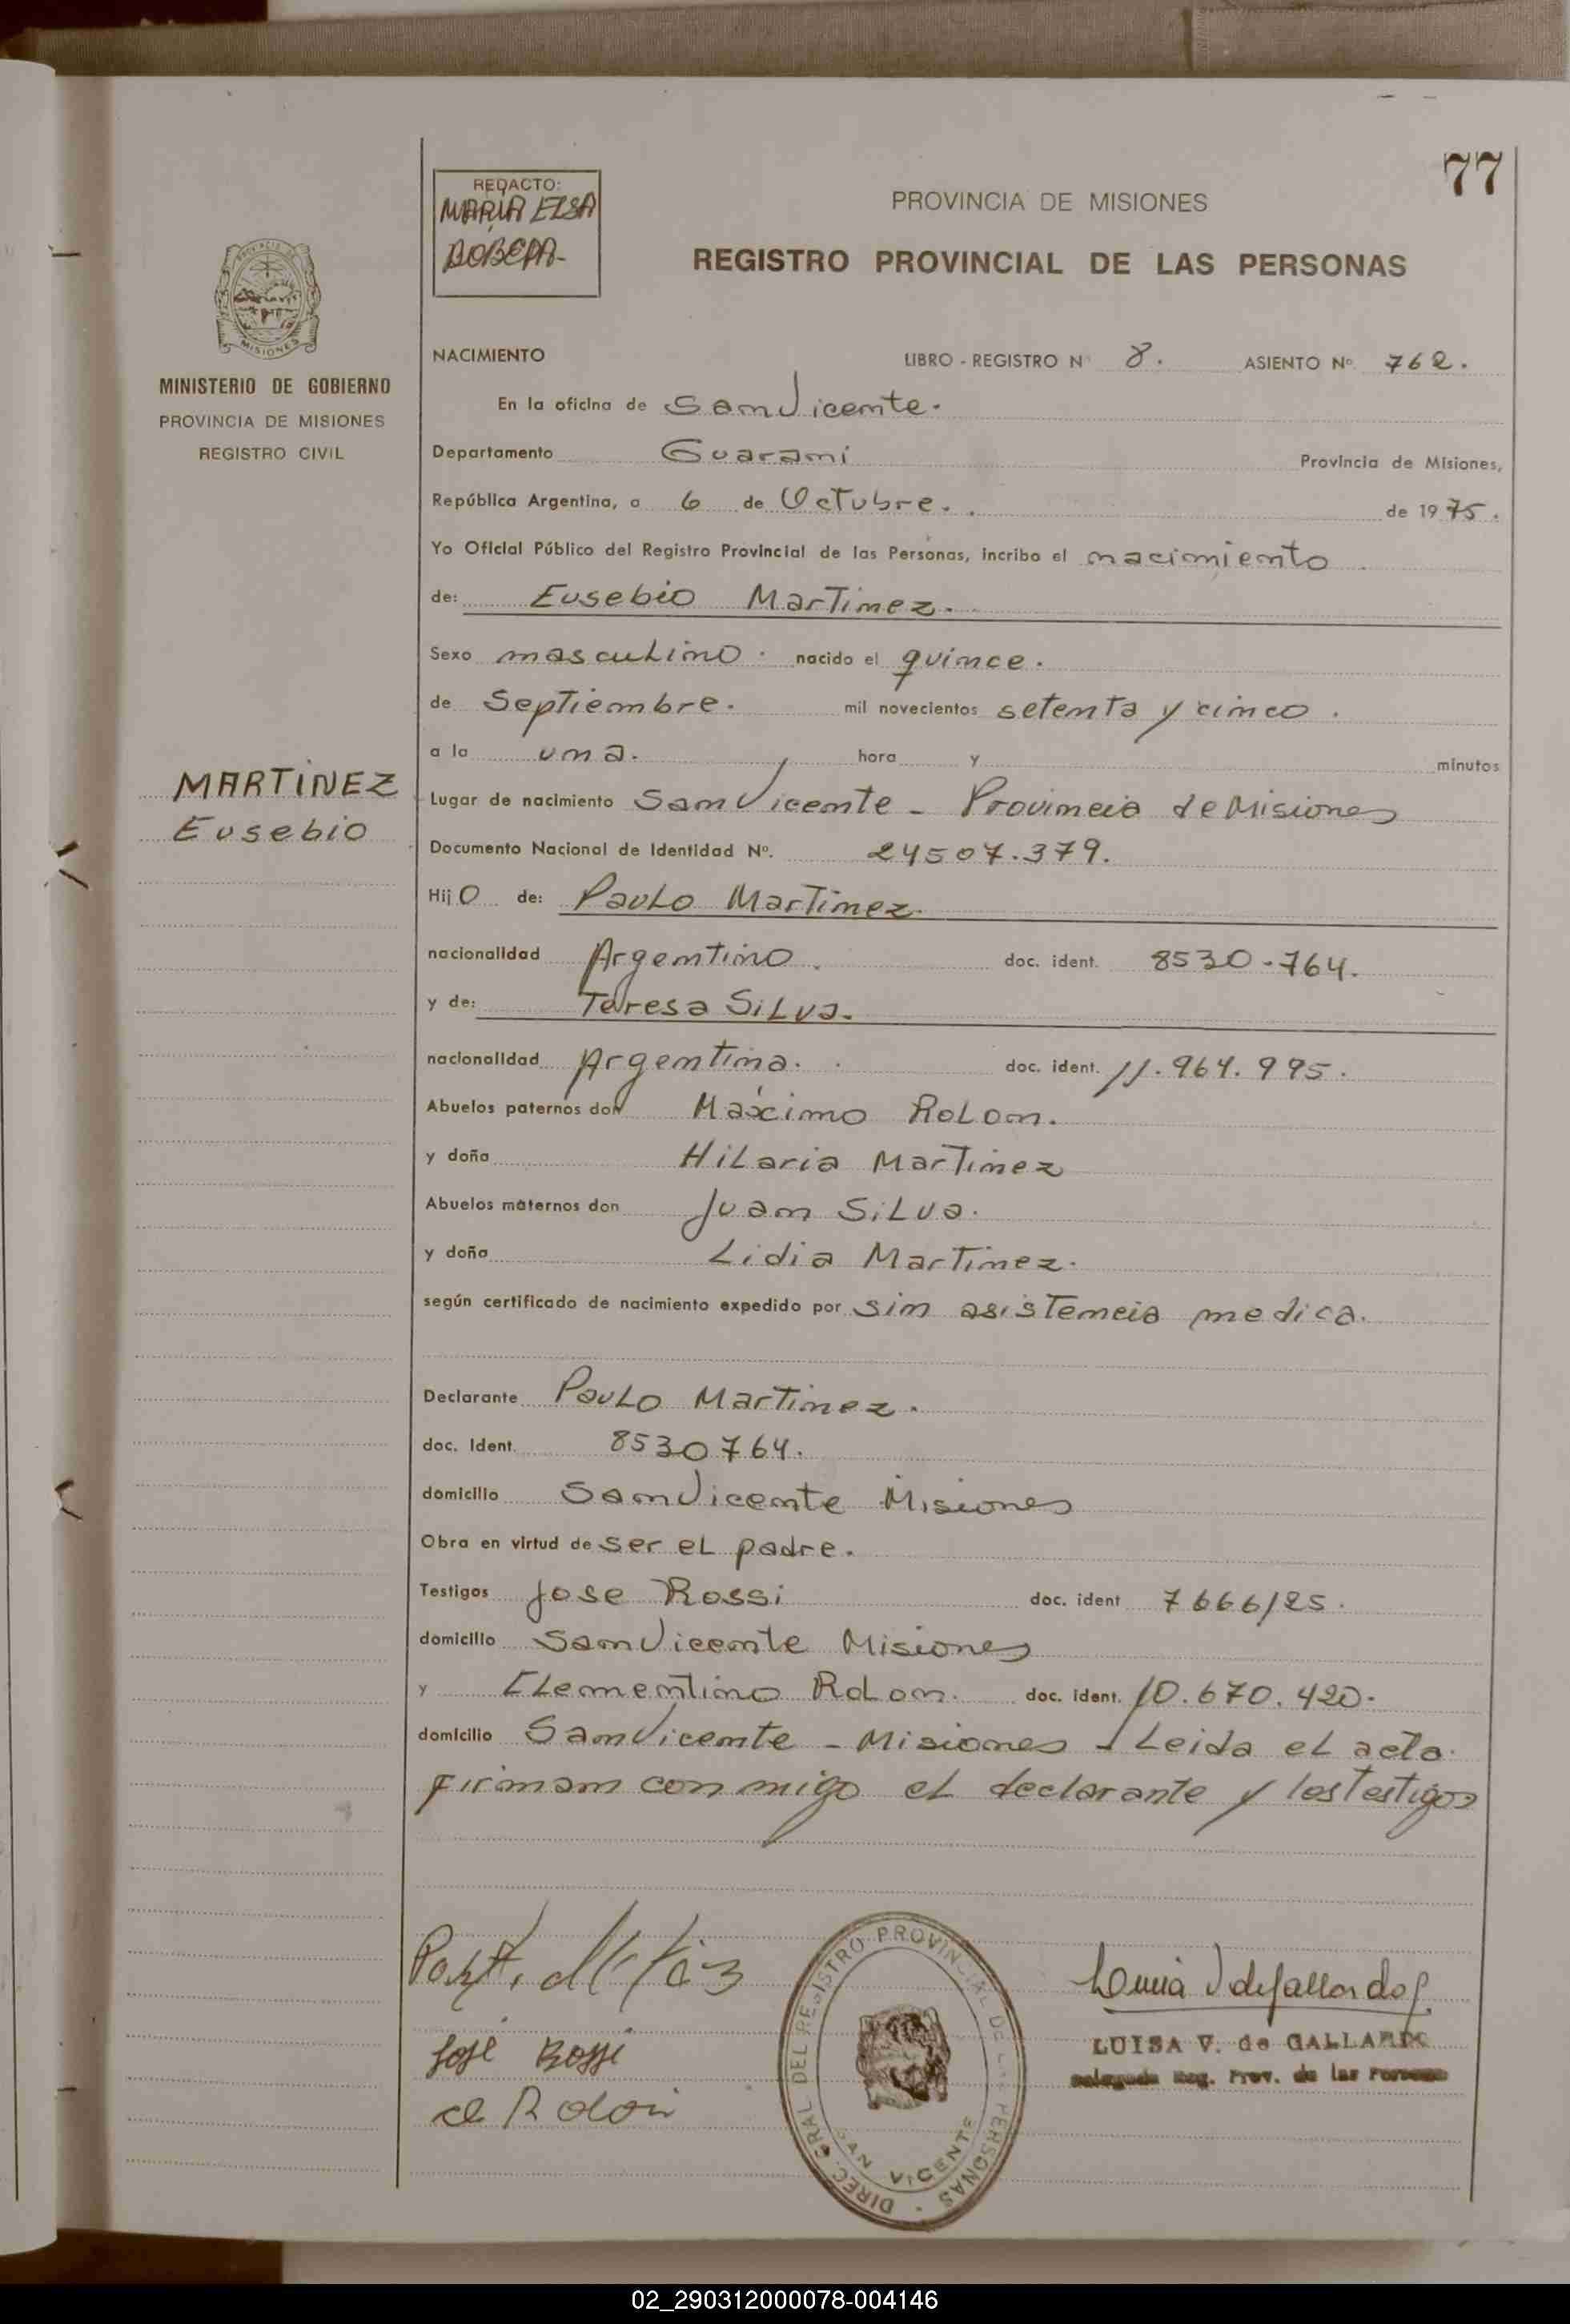 77
REDACTO:
MARIA ELSA
PROVINCIA DE MISIONES
REGISTRO PROVINCIAL DE LAS PERSONAS
MISIONES
MINISTERIO DE GOBIERNO
PROVINCIA DE MISIONES
REGISTRO CIVIL
NACIMIENTO LIBRO - REGISTRO N° 8. ASIENTO N° 762.
En la oficina de San Vicente.
Departamento Guarani Provincia de Misiones,
República Argentina, a 6 de Octubre. de 1975.
Yo Oficial Público del Registro Provincial de las Personas, incribo el nacimiento
de: Eusebio Martinez.
Sexo masculino. nacido el quince.
de Septiembre. mil novecientos setenta y cinco.
a la una. hora y minutos
MARTINEZ
Eusebio
Lugar de nacimiento San Vicente - Provincia de Misiones
Documento Nacional de Identidad N°. 24507.379.
Hijo de: Paulo Martinez.
nacionalidad Argentino. doc. ident. 8530-764.
y de: Teresa Silva.
nacionalidad Argentina. doc. ident. 11.964.995.
Abuelos paternos don Máximo Rolon.
y doña Hilaria Martinez
Abuelos maternos don Juan Silva.
y doña Lidia Martinez.
según certificado de nacimiento expedido por sin asistencia medica.
Declarante Paulo Martinez.
doc. Ident. 8530764.
domicilio San Vicente Misiones
Obra en virtud de ser el padre.
Testigos Jose Rossi doc. ident 7666125.
domicilio San Vicente Misiones
y Clementino Rolon. doc. ident. 10.670.420.
domicilio San Vicente - Misiones - Leida el acta
firman con migo el declarante y los testigos
José Rossi
cl Rolon
DIREC. GRAL DEL REGISTRO PROVINCIAL DE LAS PERSONAS
SAN VICENTE
LUISA V. de GALLARDO
Delegada Reg. Prov. de las Personas
02_290312000078-004146